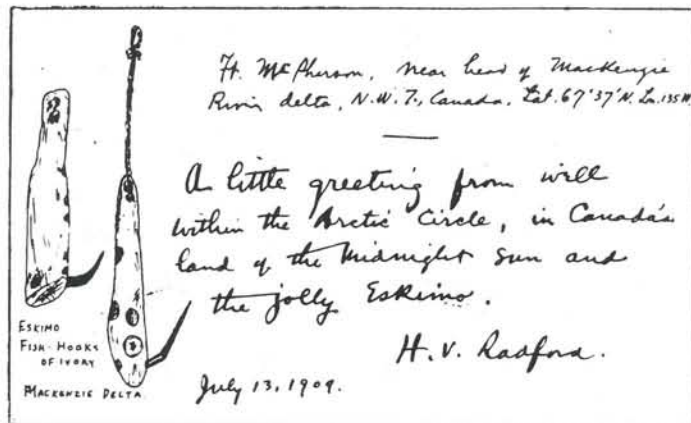 Ft. McPherson, near head of Mackenzie
River delta, N.W.T., Canada. Lat. 67°37'N. Lon. 135 W.
A little greeting from well
within the Arctic Circle, in Canada's
land of the Midnight Sun and
the jolly Eskimo.
H. V. Radford.
July 13, 1909.
ESKIMO
FISH-HOOKS
OF IVORY
MACKENZIE DELTA